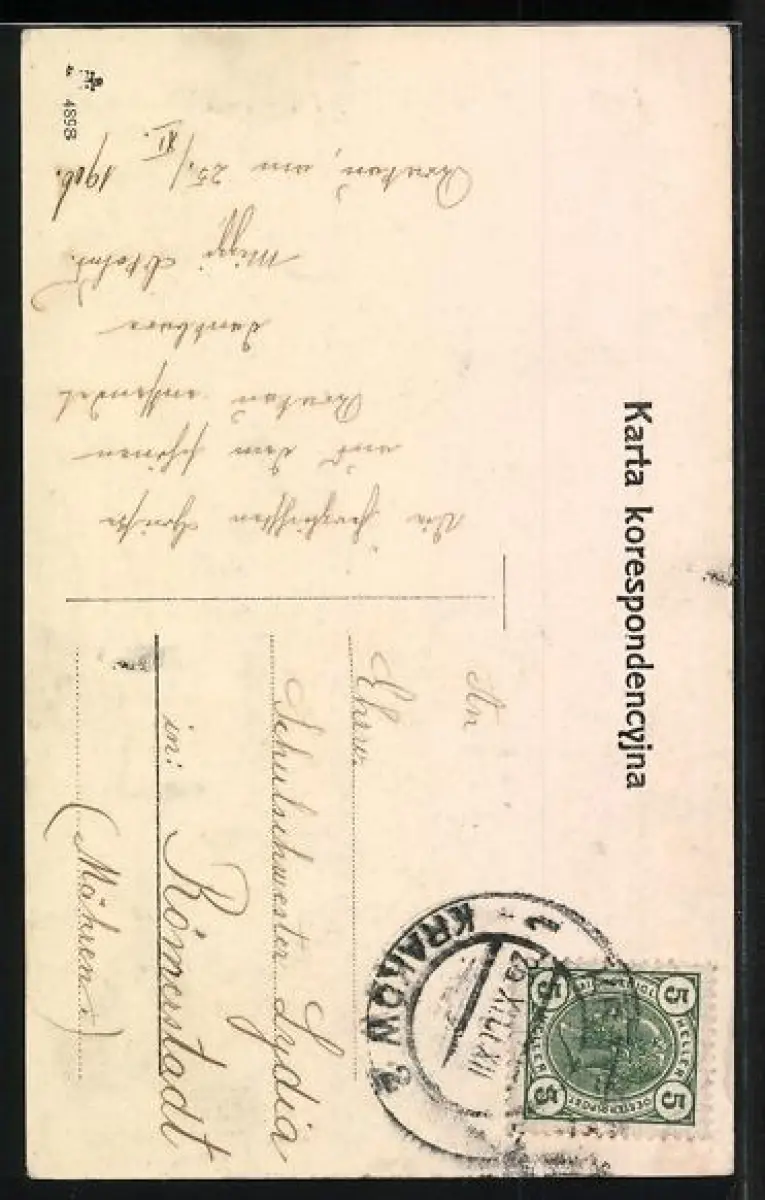 Karta korespondencyjna
4898
Krakau, am 25./XI. 1906.
Die herzlichsten Grüße
aus dem schönen
Krakau entsendet
dankbare
Mizzi
An
Ehrw.
Schulschwester Lydia
in: Römerstadt
(Mähren.)
KRAKÓW 2
25 XI
5 HELLER 5
5 HELLER 5